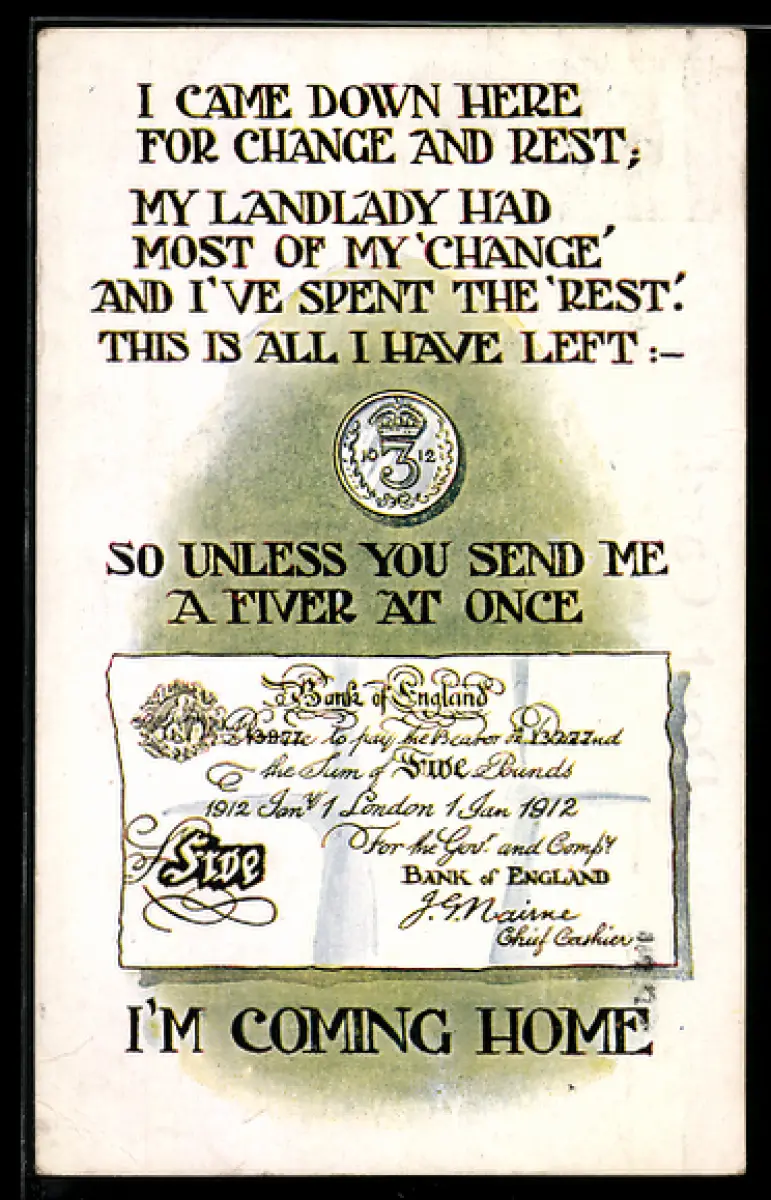 I CAME DOWN HERE
FOR CHANGE AND REST;
MY LANDLADY HAD
MOST OF MY 'CHANGE'
AND I'VE SPENT THE 'REST'.
THIS IS ALL I HAVE LEFT :–
3
1912
SO UNLESS YOU SEND ME
A FIVER AT ONCE
Bank of England
to pay the Bearer
the Sum of Five Pounds
1912 Janʸ 1 London 1 Jan 1912
For the Govʳ and Compʸ
£Five
BANK of ENGLAND
J.G. Nairne
Chief Cashier
I'M COMING HOME